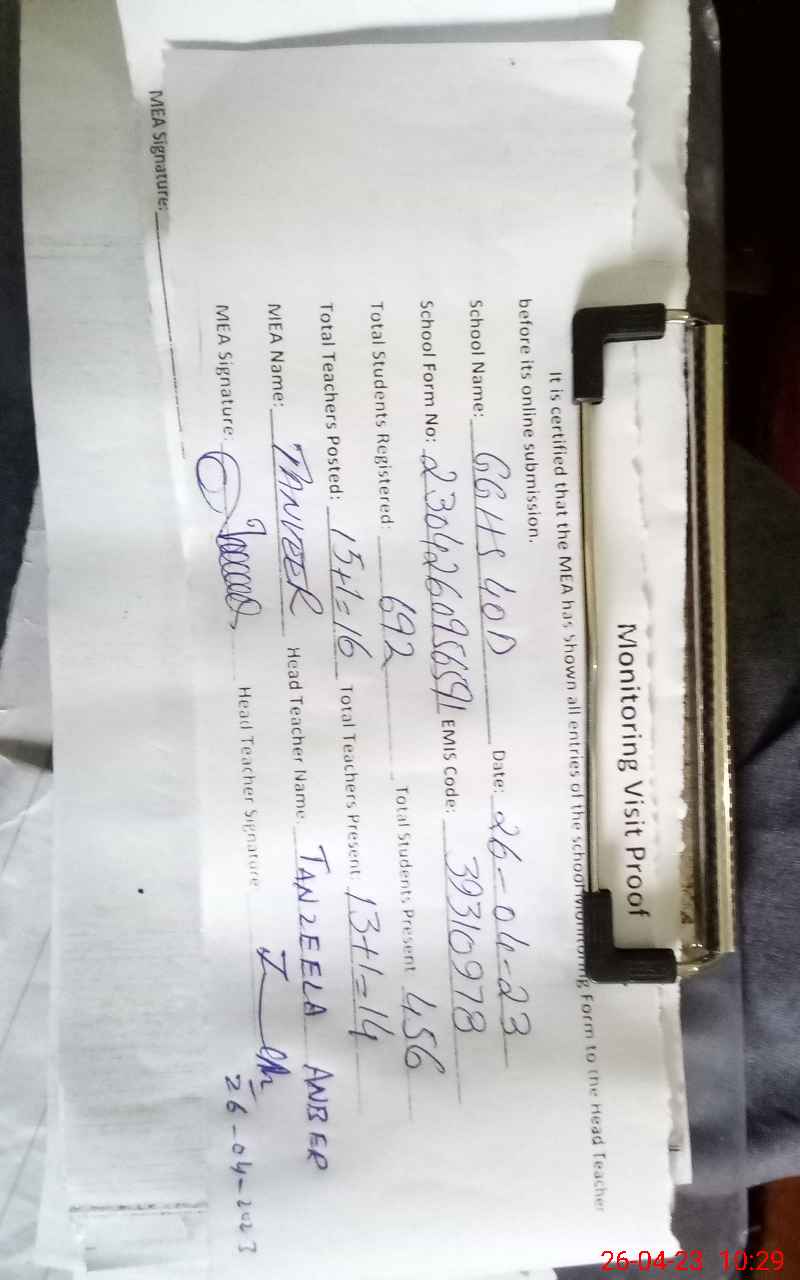 Monitoring Visit Proof
It is certified that the MEA has shown all entries of the school Monitoring Form to the Head Teacher
before its online submission.
School Name: GGHS 40D Date: 26-04-23
School Form No: 2304260956591 EMIS Code: 39310978
Total Students Registered: 692 Total Students Present: 456
Total Teachers Posted: 15+1=16 Total Teachers Present: 13+1=14
MEA Name: TANVEER Head Teacher Name: TANZEELA ANBER
MEA Signature: Head Teacher Signature
26-04-2023
MEA Signature:
26-04-23 10:29